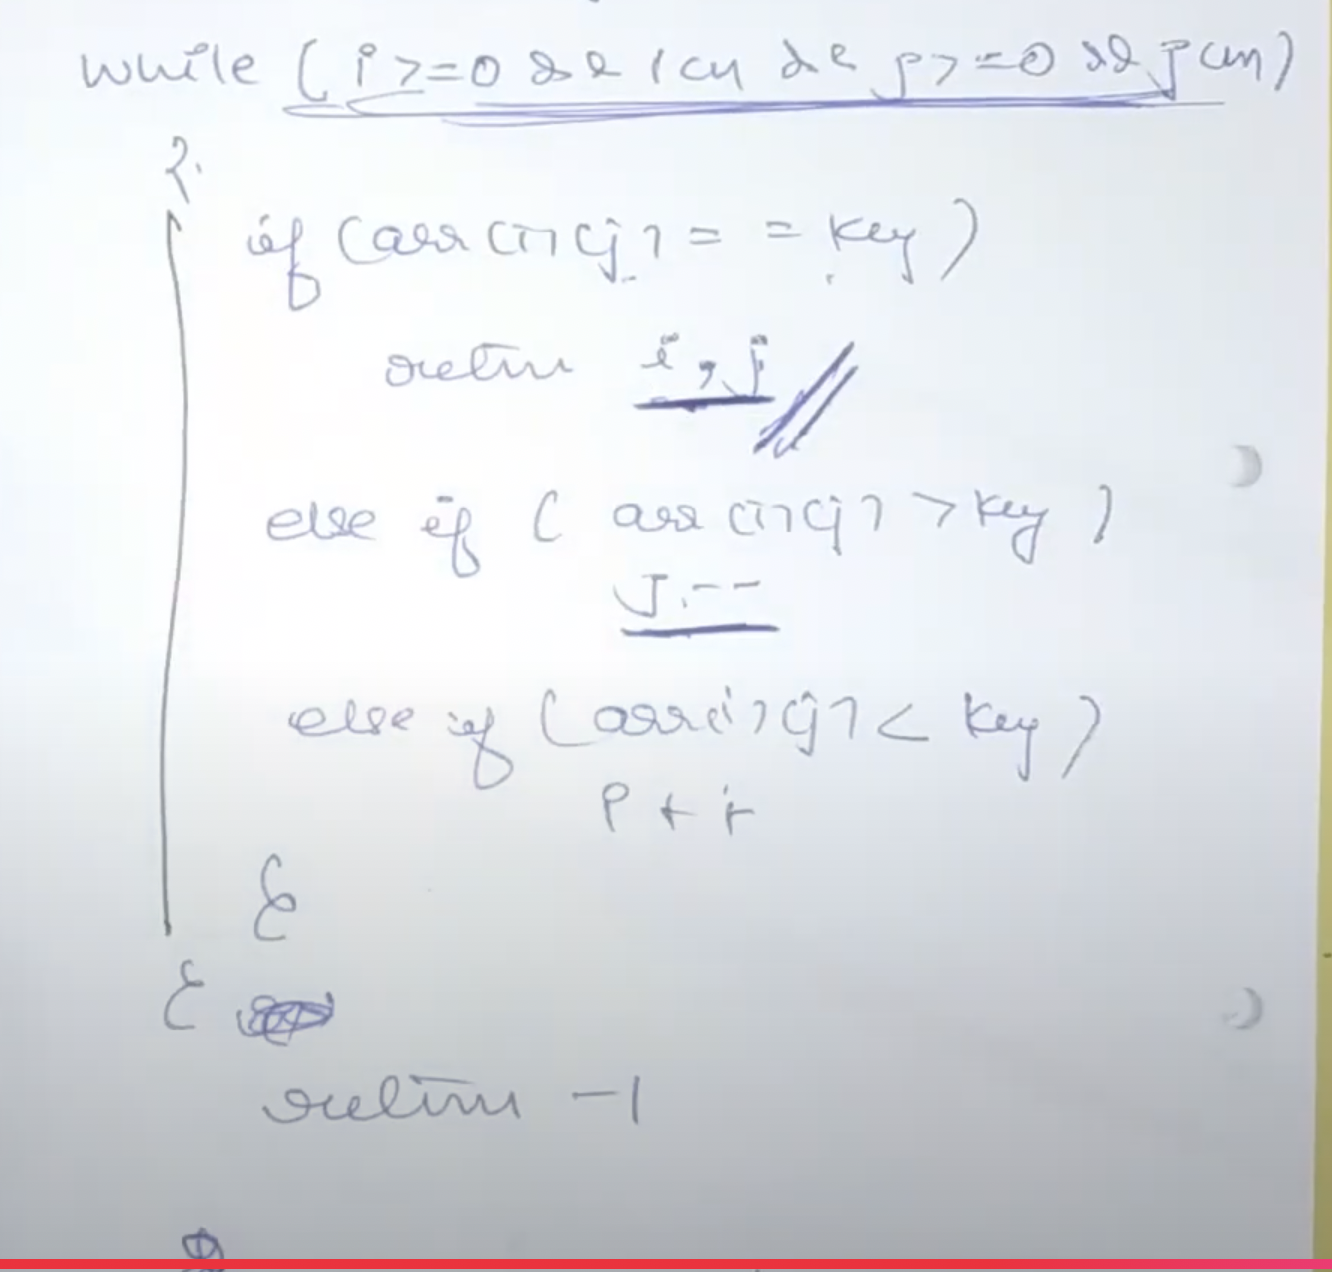 while ( i >= 0 && i < n && j >= 0 && j < m )
{
if (arr[i][j] == key )
return i, j
else if ( arr[i][j] > key )
J--
else if ( arr[i][j] < key )
i++
}
}
return -1